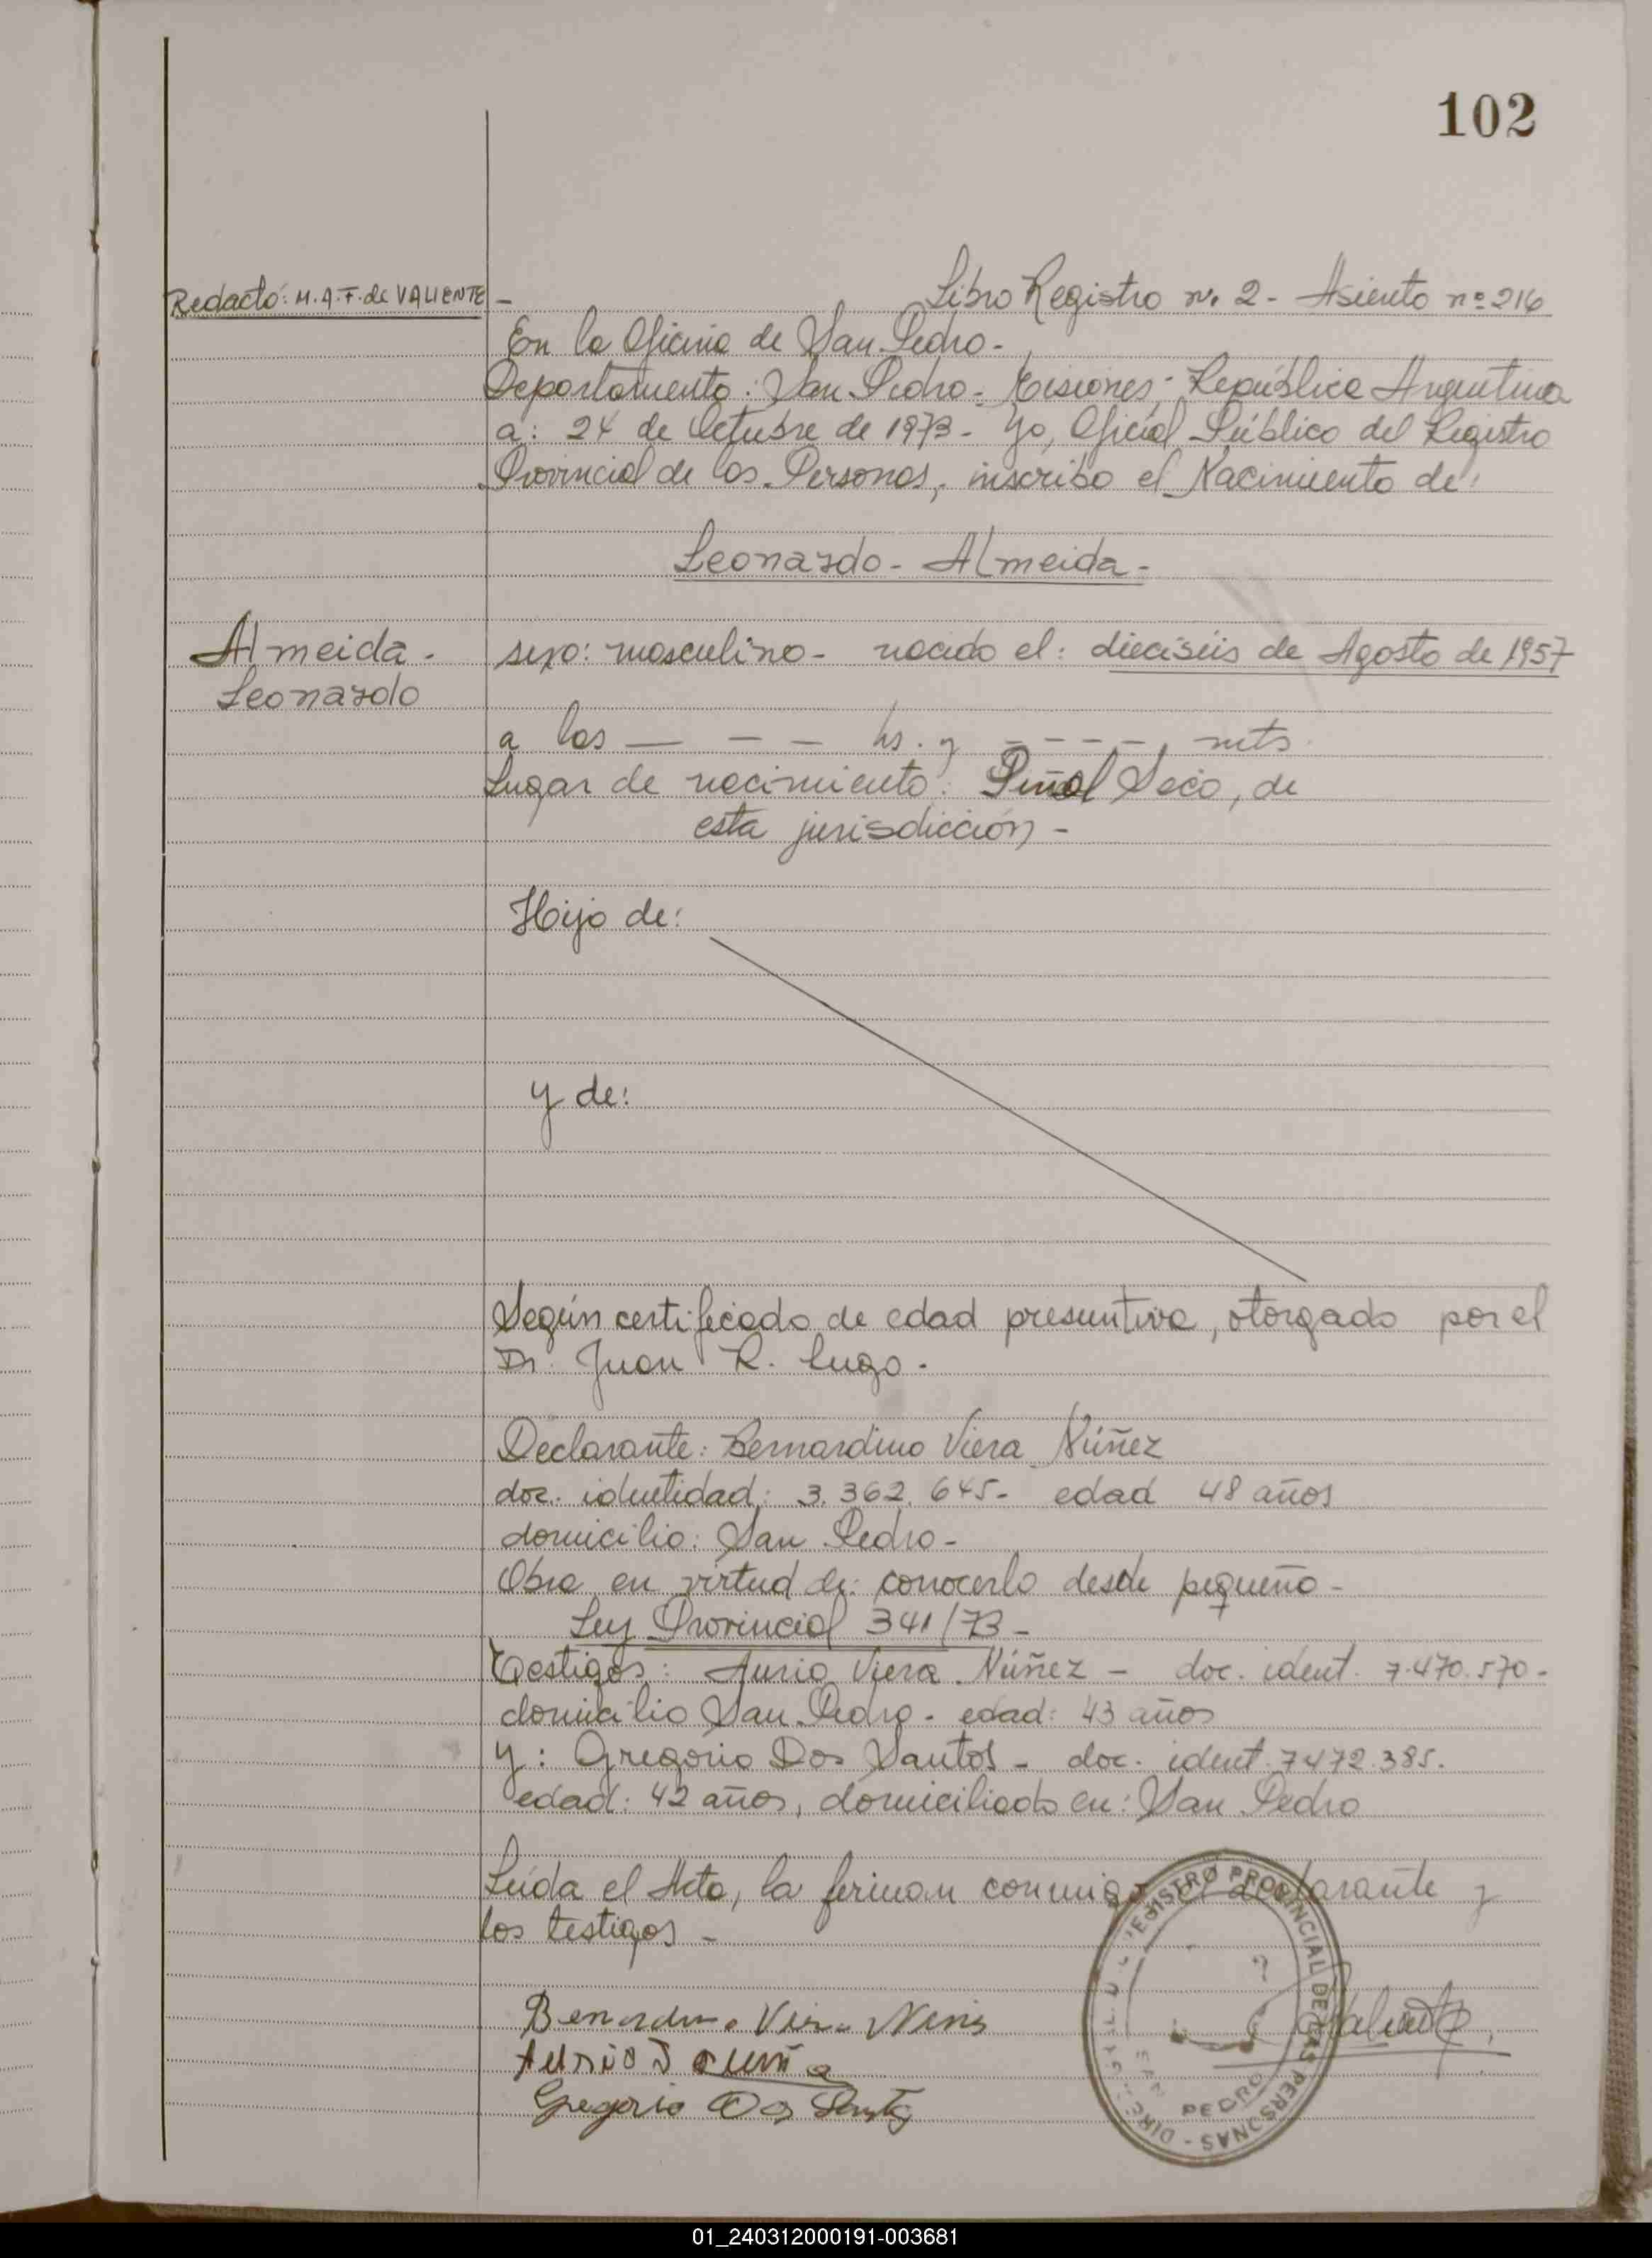 102
Libro Registro nº 2 - Asiento nº 216
Redactó: M.A.F. de VALIENTE -
En la Oficina de San Pedro -
Departamento: San Pedro - Misiones; República Argentina
a: 24 de Octubre de 1973 - Yo, Oficial Público del Registro
Provincial de las Personas, inscribo el Nacimiento de:
Leonardo - Almeida -
Almeida -
Leonardo
sexo: masculino - nacido el: dieciséis de Agosto de 1957
a las — — — — hs. y - - - - , mts.
Lugar de nacimiento: Piñal Seco, de
esta jurisdicción -
Hijo de:
y de:
Según certificado de edad presuntiva, otorgado por el
Dr. Juan R. Lugo.
Declarante: Bernardino Viera Núñez
doc. identidad: 3.362.645 - edad 48 años
domicilio: San Pedro -
Obra en virtud de: conocerlo desde pequeño -
Ley Provincial 341/73 -
Testigos: Aurio Viera Núñez - doc. ident. 7.470.570 -
domicilio San Pedro - edad: 43 años
y: Gregorio Dos Santos - doc. ident. 7472.385.
edad: 42 años, domiciliado en: San Pedro
Leída el Acta, la firman conmigo el declarante y
los testigos -
REGISTRO PROVINCIAL DE LAS PERSONAS -
SAN PEDRO
Gregorio Dos Santos
01_240312000191-003681